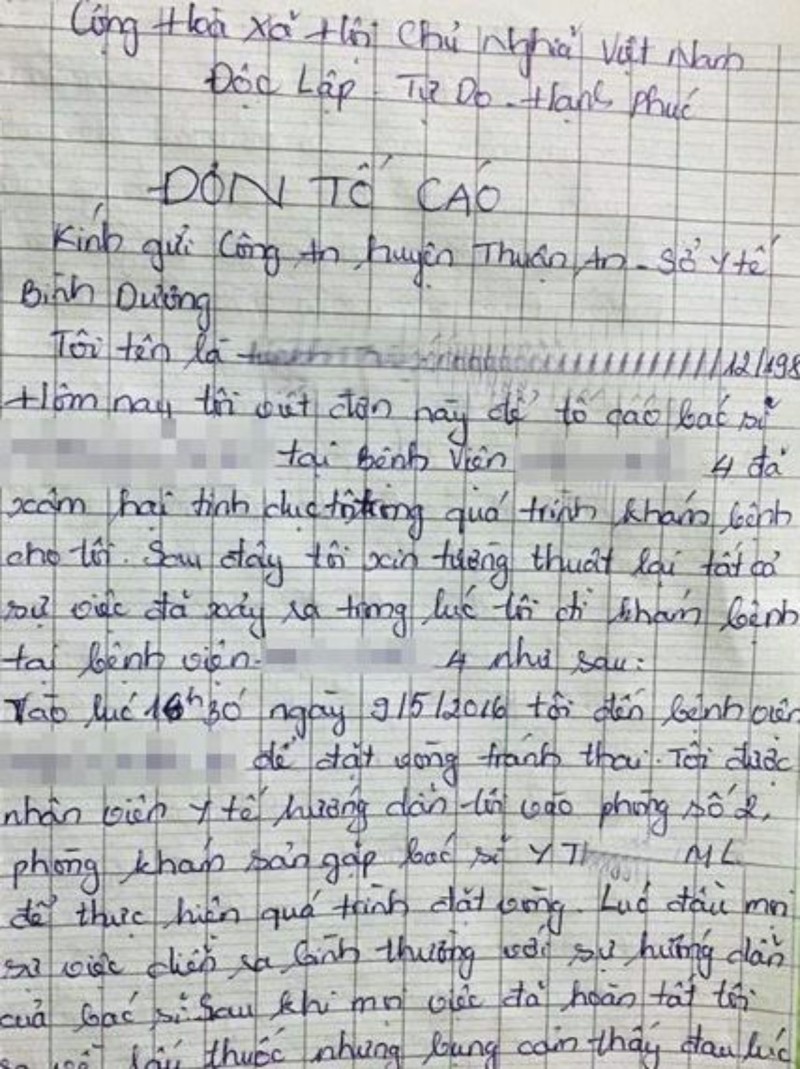 Cộng Hoà Xã Hội Chủ Nghĩa Việt Nam
Độc Lập - Tự Do - Hạnh Phúc
ĐƠN TỐ CÁO
Kính gửi Công An huyện Thuận An - Sở Y tế
Bình Dương
Tôi tên là 12/198
Hôm nay tôi viết đơn này để tố cáo bác sĩ
tại Bệnh Viện 4 đã
xâm hại tình dục tôi trong quá trình khám bệnh
cho tôi. Sau đây tôi xin tường thuật lại tất cả
sự việc đã xảy ra trong lúc tôi đi khám bệnh
tại bệnh viện 4 như sau:
Vào lúc 16h30 ngày 9/5/2016 tôi đến bệnh viện
để đặt vòng tránh thai. Tôi được
nhân viên y tế hướng dẫn tôi vào phòng số 2,
phòng khám sản gặp bác sĩ Y Th ML
để thực hiện quá trình đặt vòng. Lúc đầu mọi
sự việc diễn ra bình thường với sự hướng dẫn
của bác sĩ. Sau khi mọi việc đã hoàn tất tôi
lấy thuốc nhưng bụng còn thấy đau lúc